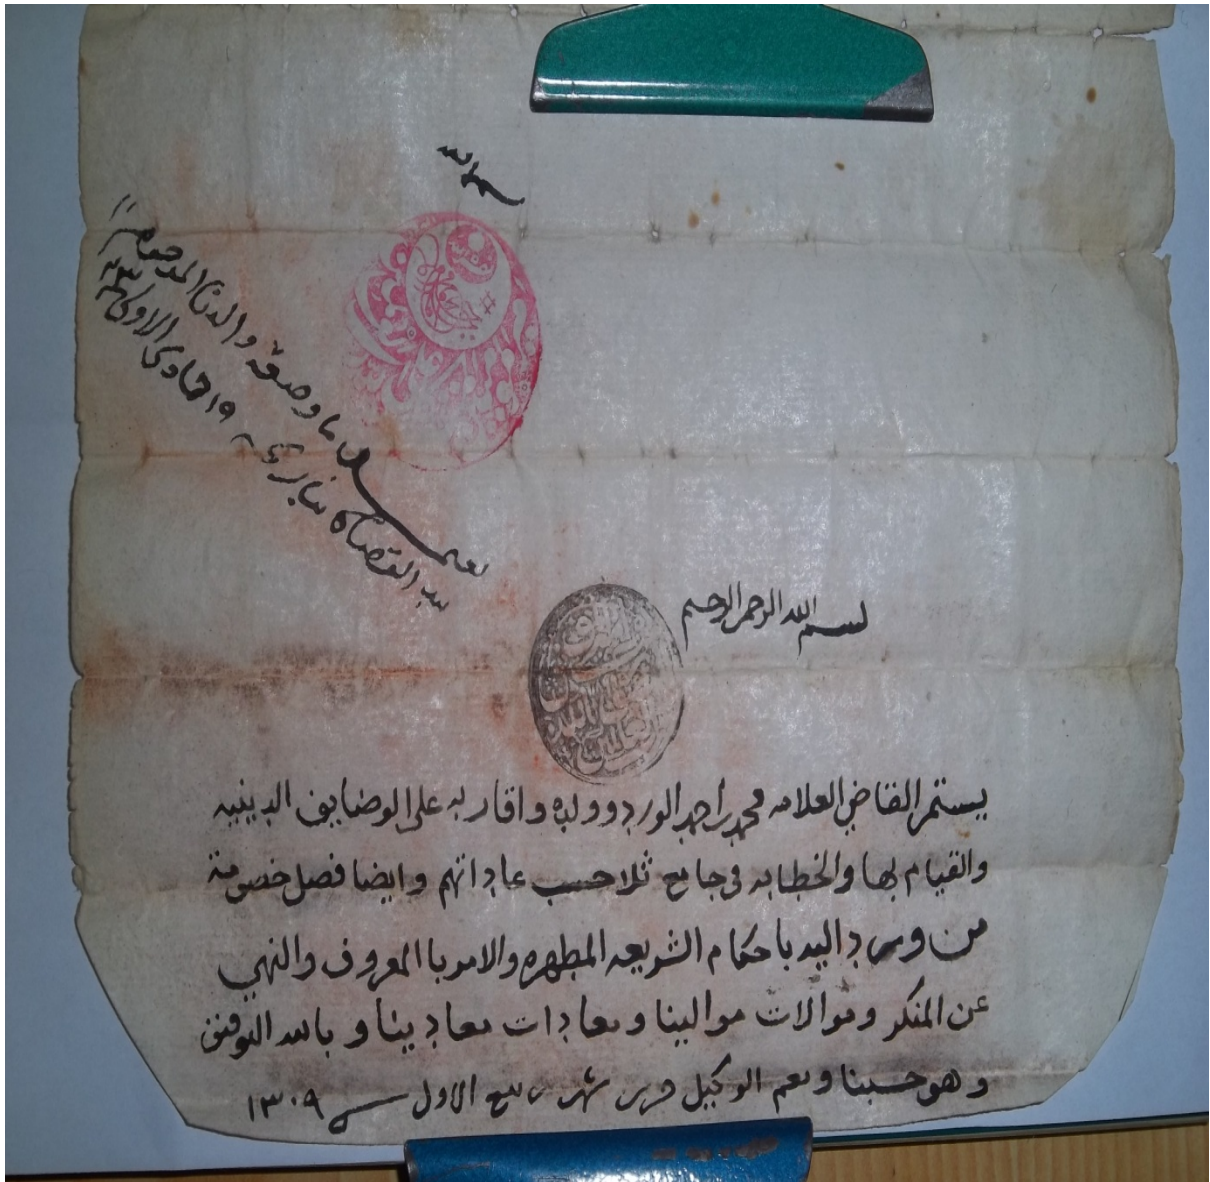 بسم الله
يعمل بما وضعه والدنا المرحوم
بيد القضاة بتاريخه ١٩ جمادى الاولى
بسم الله الرحمن الرحيم
يستمر القاضي العلامه محمد بن احمد الورد وولده واقاربه على الوضايف الدينيه
والقيام بها والخطابه في جامع ثلا حسب عاداتهم وايضا فصل خصومة
من ورد اليه باحكام الشريعه المطهره والامر بالمعروف والنهي
عن المنكر وموالات موالينا ومعادات معادينا وبالله التوفيق
وهو حسبنا ونعم الوكيل حرر شهر ربيع الاول سنه ١٣٠٩